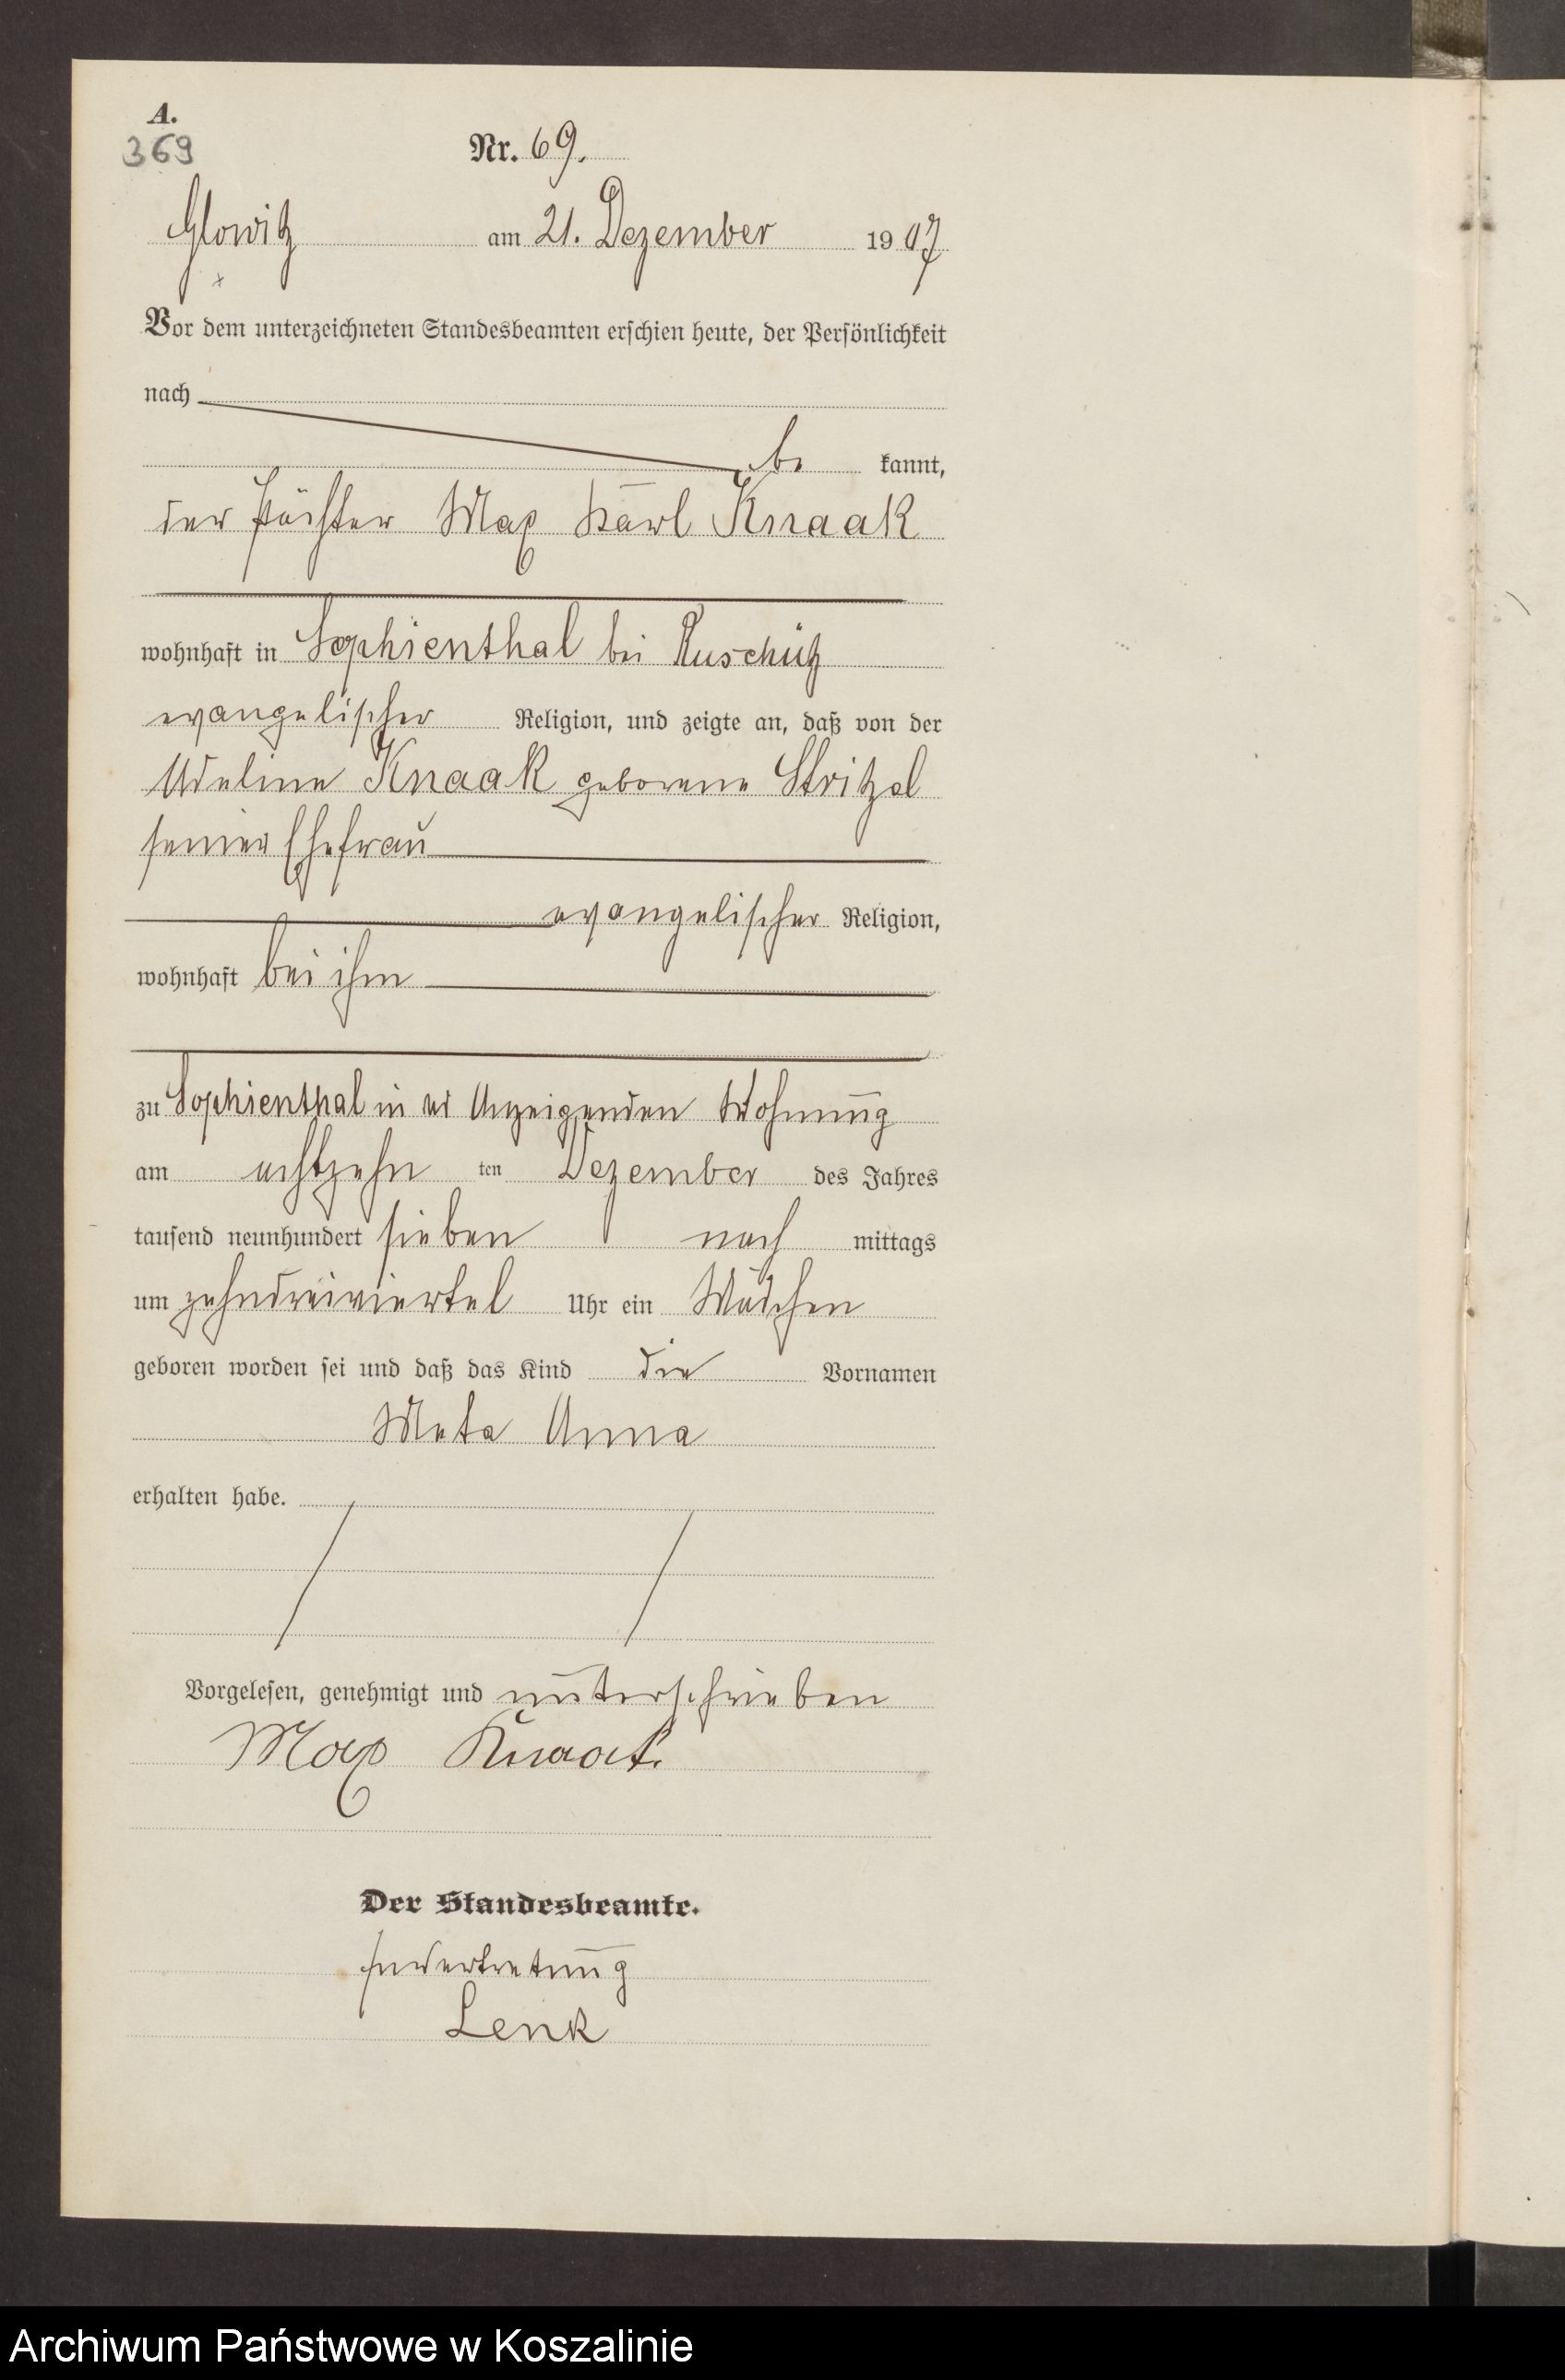 A.
369
Nr. 69.
Glowitz am 21. Dezember 1907
Vor dem unterzeichneten Standesbeamten erschien heute, der Persönlichkeit
nach
be kannt,
der Pächter Max Karl Knaak
wohnhaft in Sophienthal bei Ruschütz
evangelischer Religion, und zeigte an, daß von der
Adeline Knaak geborene Stritzel
seiner Ehefrau
evangelischer Religion,
wohnhaft bei ihm
zu Sophienthal in Anzeigenden Wohnung
am achtzehn ten Dezember des Jahres
tausend neunhundert sieben nach mittags
um zehndreiviertel Uhr ein Mädchen
geboren worden sei und daß das Kind die Vornamen
Meta Anna
erhalten habe.
Vorgelesen, genehmigt und unterschrieben
Max Knaak.
Der Standesbeamte.
In Vertretung
Lenk
Archiwum Państwowe w Koszalinie